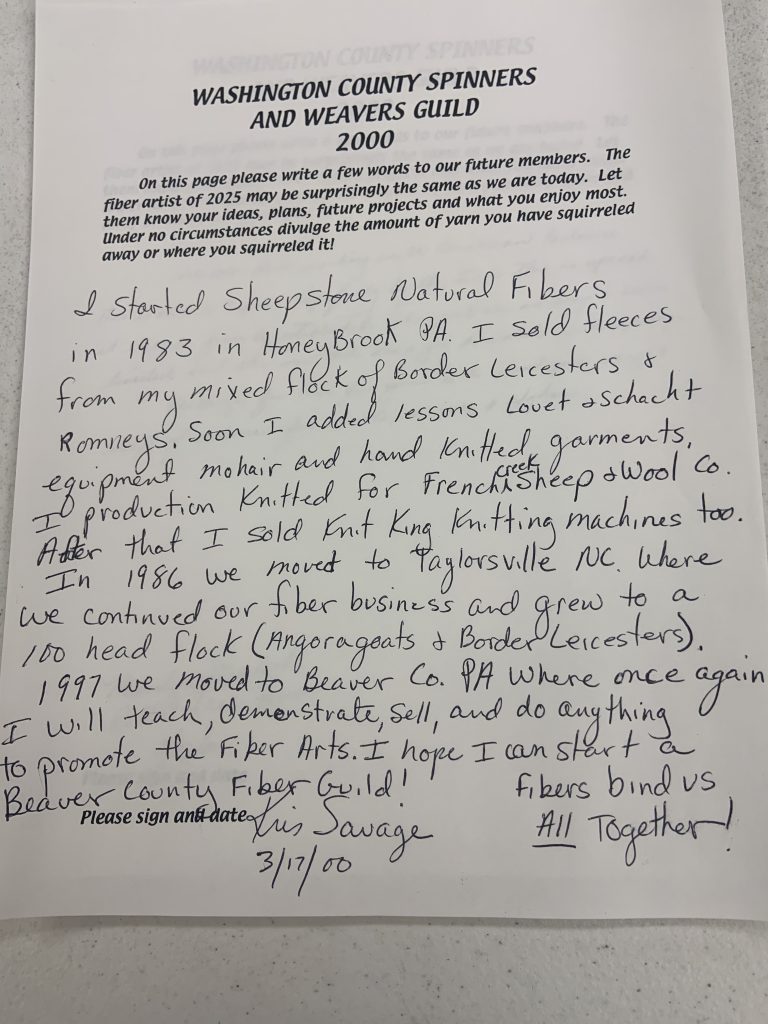 WASHINGTON COUNTY SPINNERS
AND WEAVERS GUILD
2000
On this page please write a few words to our future members. The
fiber artist of 2025 may be surprisingly the same as we are today. Let
them know your ideas, plans, future projects and what you enjoy most.
Under no circumstances divulge the amount of yarn you have squirreled
away or where you squirreled it!
I started Sheepstone Natural Fibers
in 1983 in HoneyBrook PA. I sold fleeces
from my mixed flock of Border Leicesters &
Romneys. Soon I added lessons Louet & Schacht
equipment mohair and hand Knitted garments,
I production Knitted for French creek Sheep & Wool Co.
After that I sold Knit King Knitting machines too.
In 1986 we moved to Taylorsville NC. Where
we continued our fiber business and grew to a
100 head flock (Angoragoats & Border Leicesters).
1997 we moved to Beaver Co. PA where once again
I will teach, demonstrate, sell, and do anything
to promote the Fiber Arts. I hope I can start a
Beaver County Fiber Guild!
Fibers bind us
All Together!
Please sign and date
Kris Savage
3/17/00